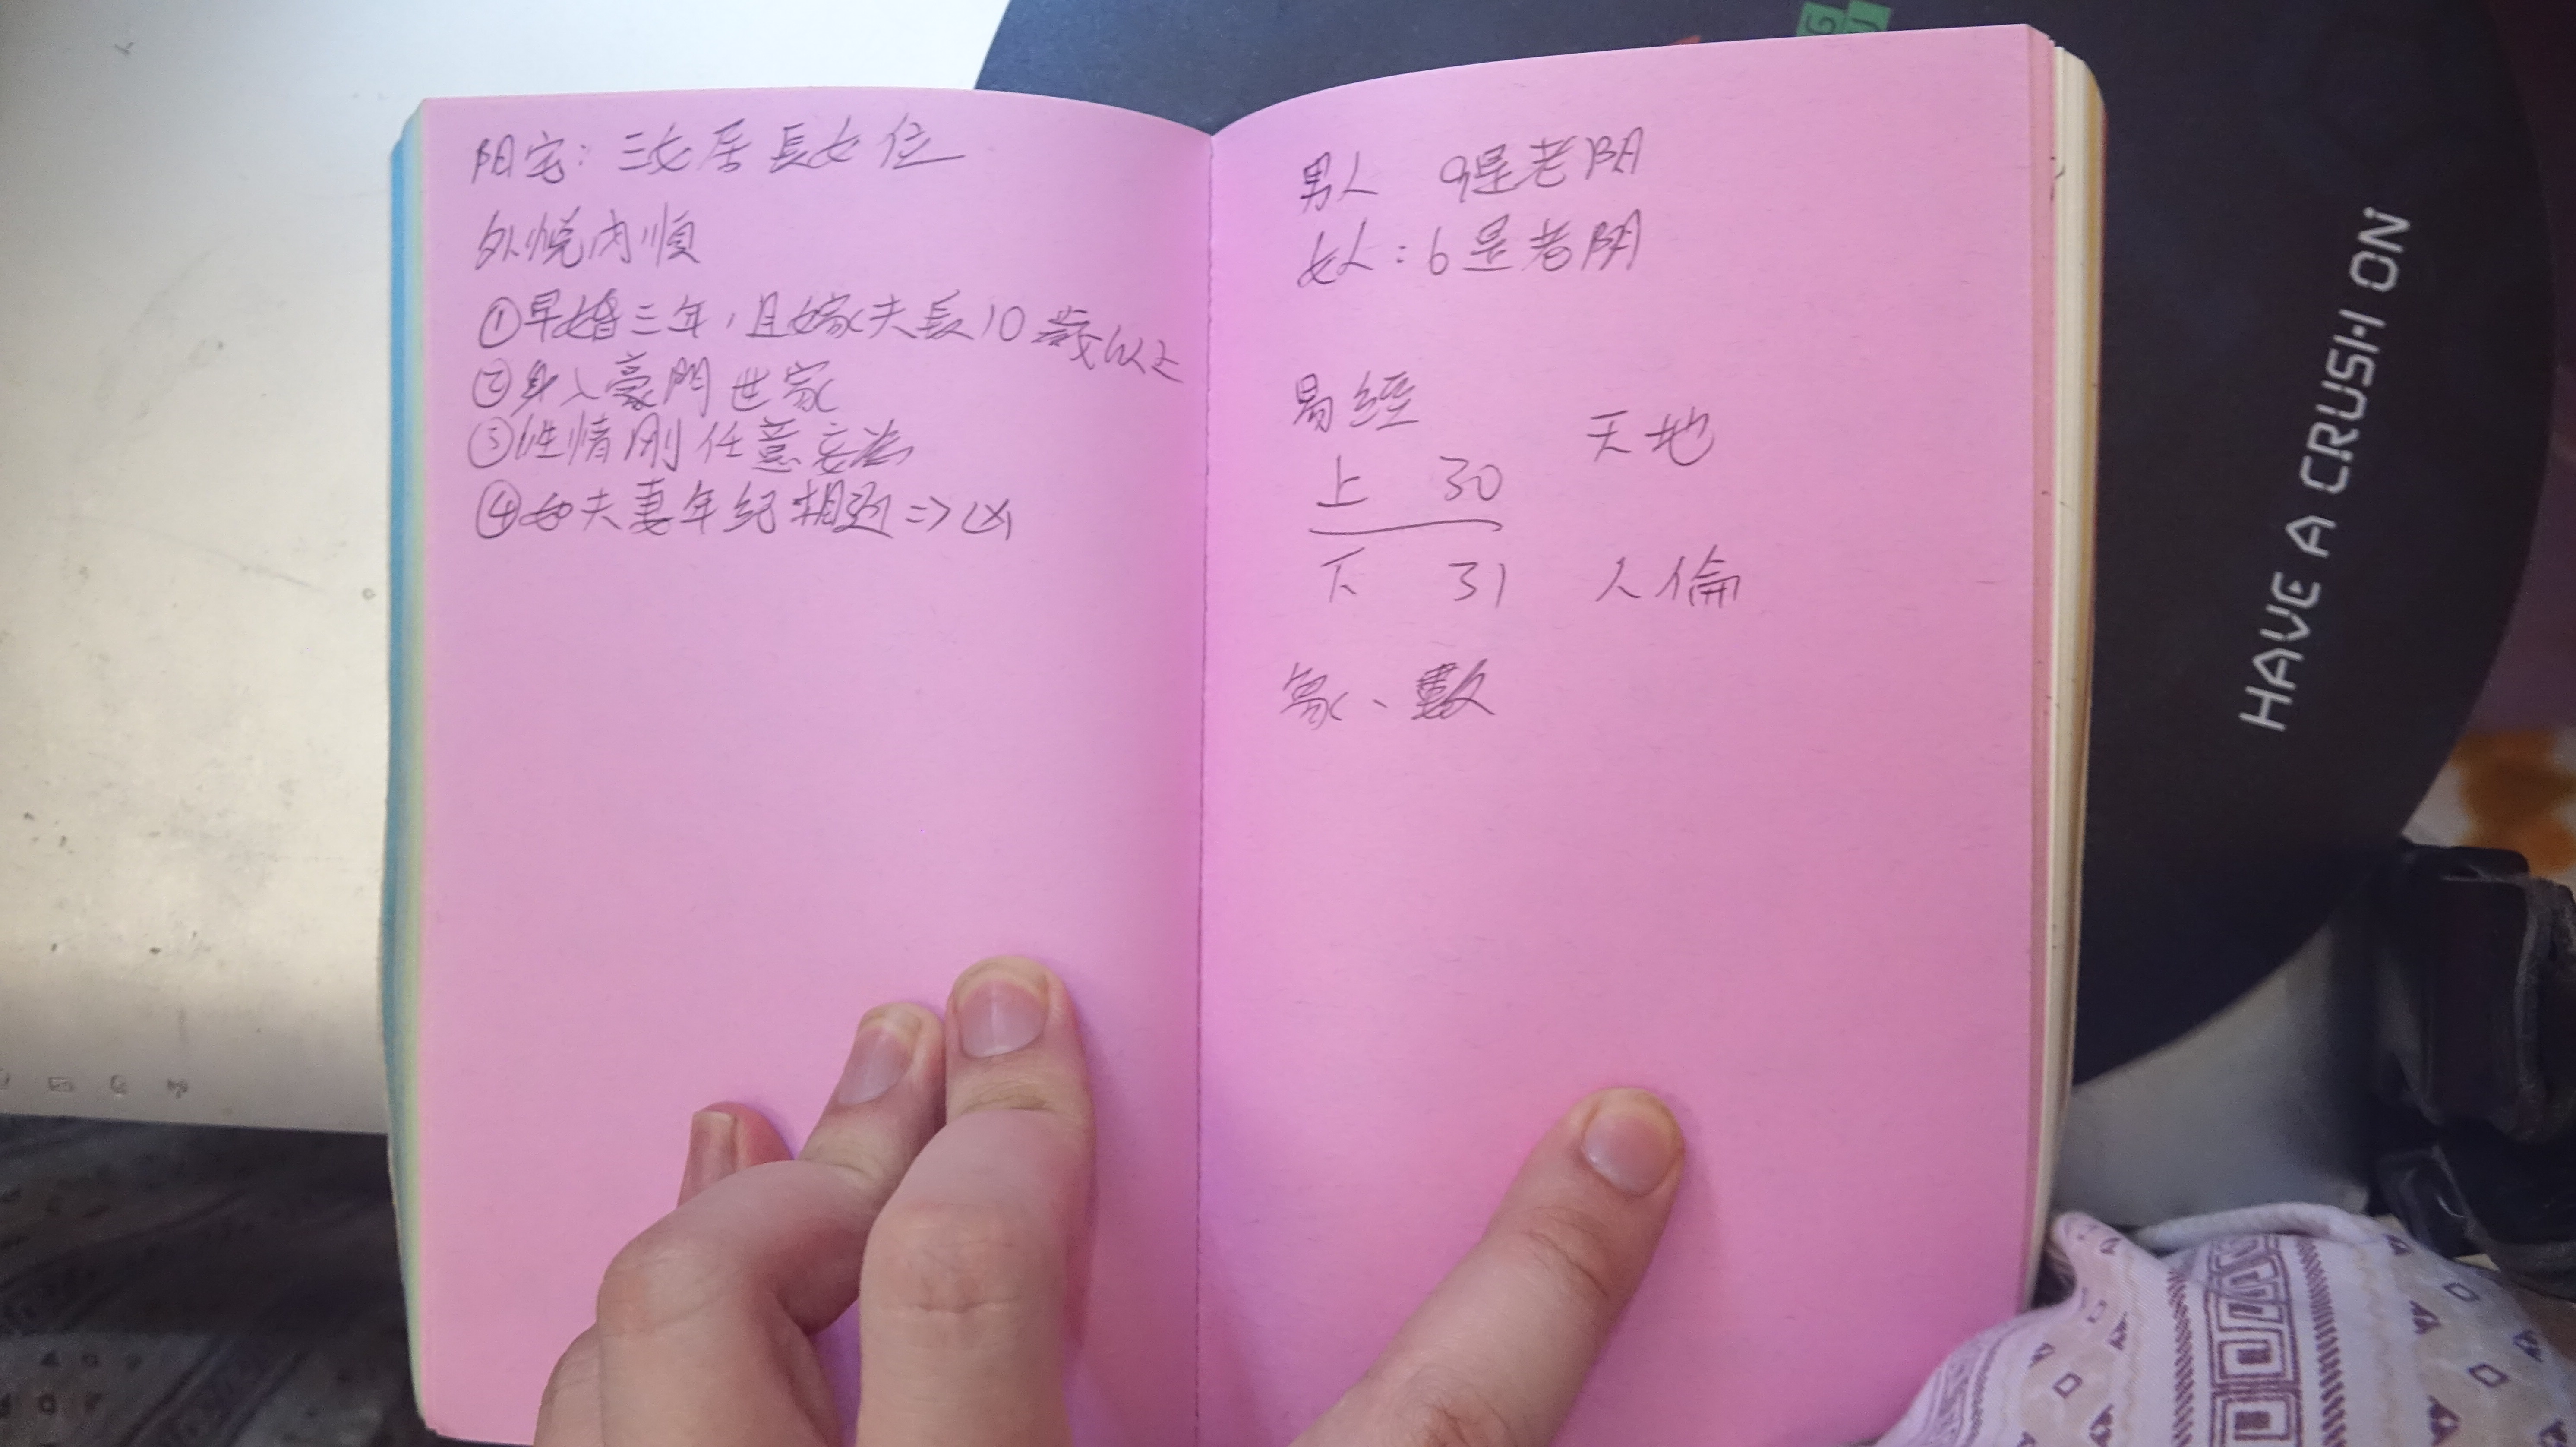 阳宅：三女居長女位
外悦内順
①早婚三年，且嫁夫長10歲以上
②身入豪門世家
③性情刚任意妄为
④如夫妻年纪相近=>凶
男人 9是老阴
女人：6是老阴
易經
天地
上 30
下 31 人倫
象、數
HAVE A CRUSH ON